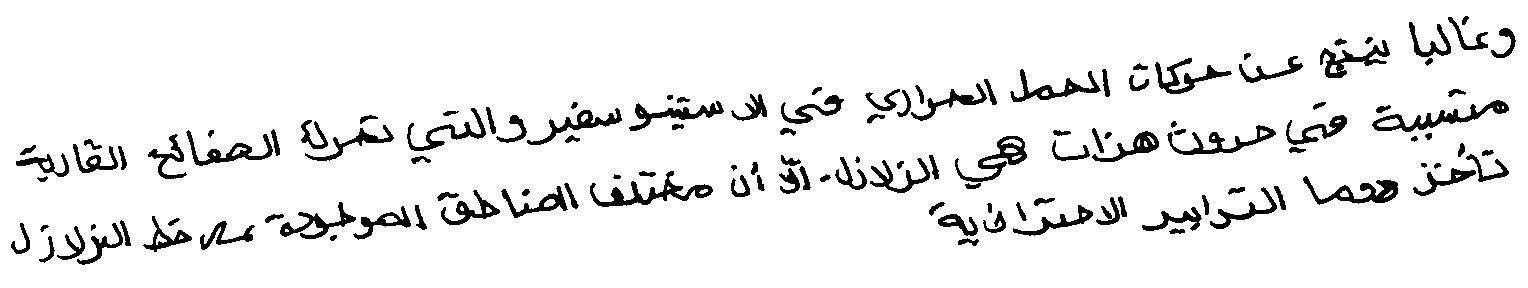 وغالبا ينتج عن حركات الحمل الحراري في الاستينوسفير والتي تحرك الصفائح القارية
متسببة في حدوث هزات هي الزلازل. الا أن مختلف المناطق الموجودة على خط الزلازل
تأخذ دوما التدابير الاحترازية